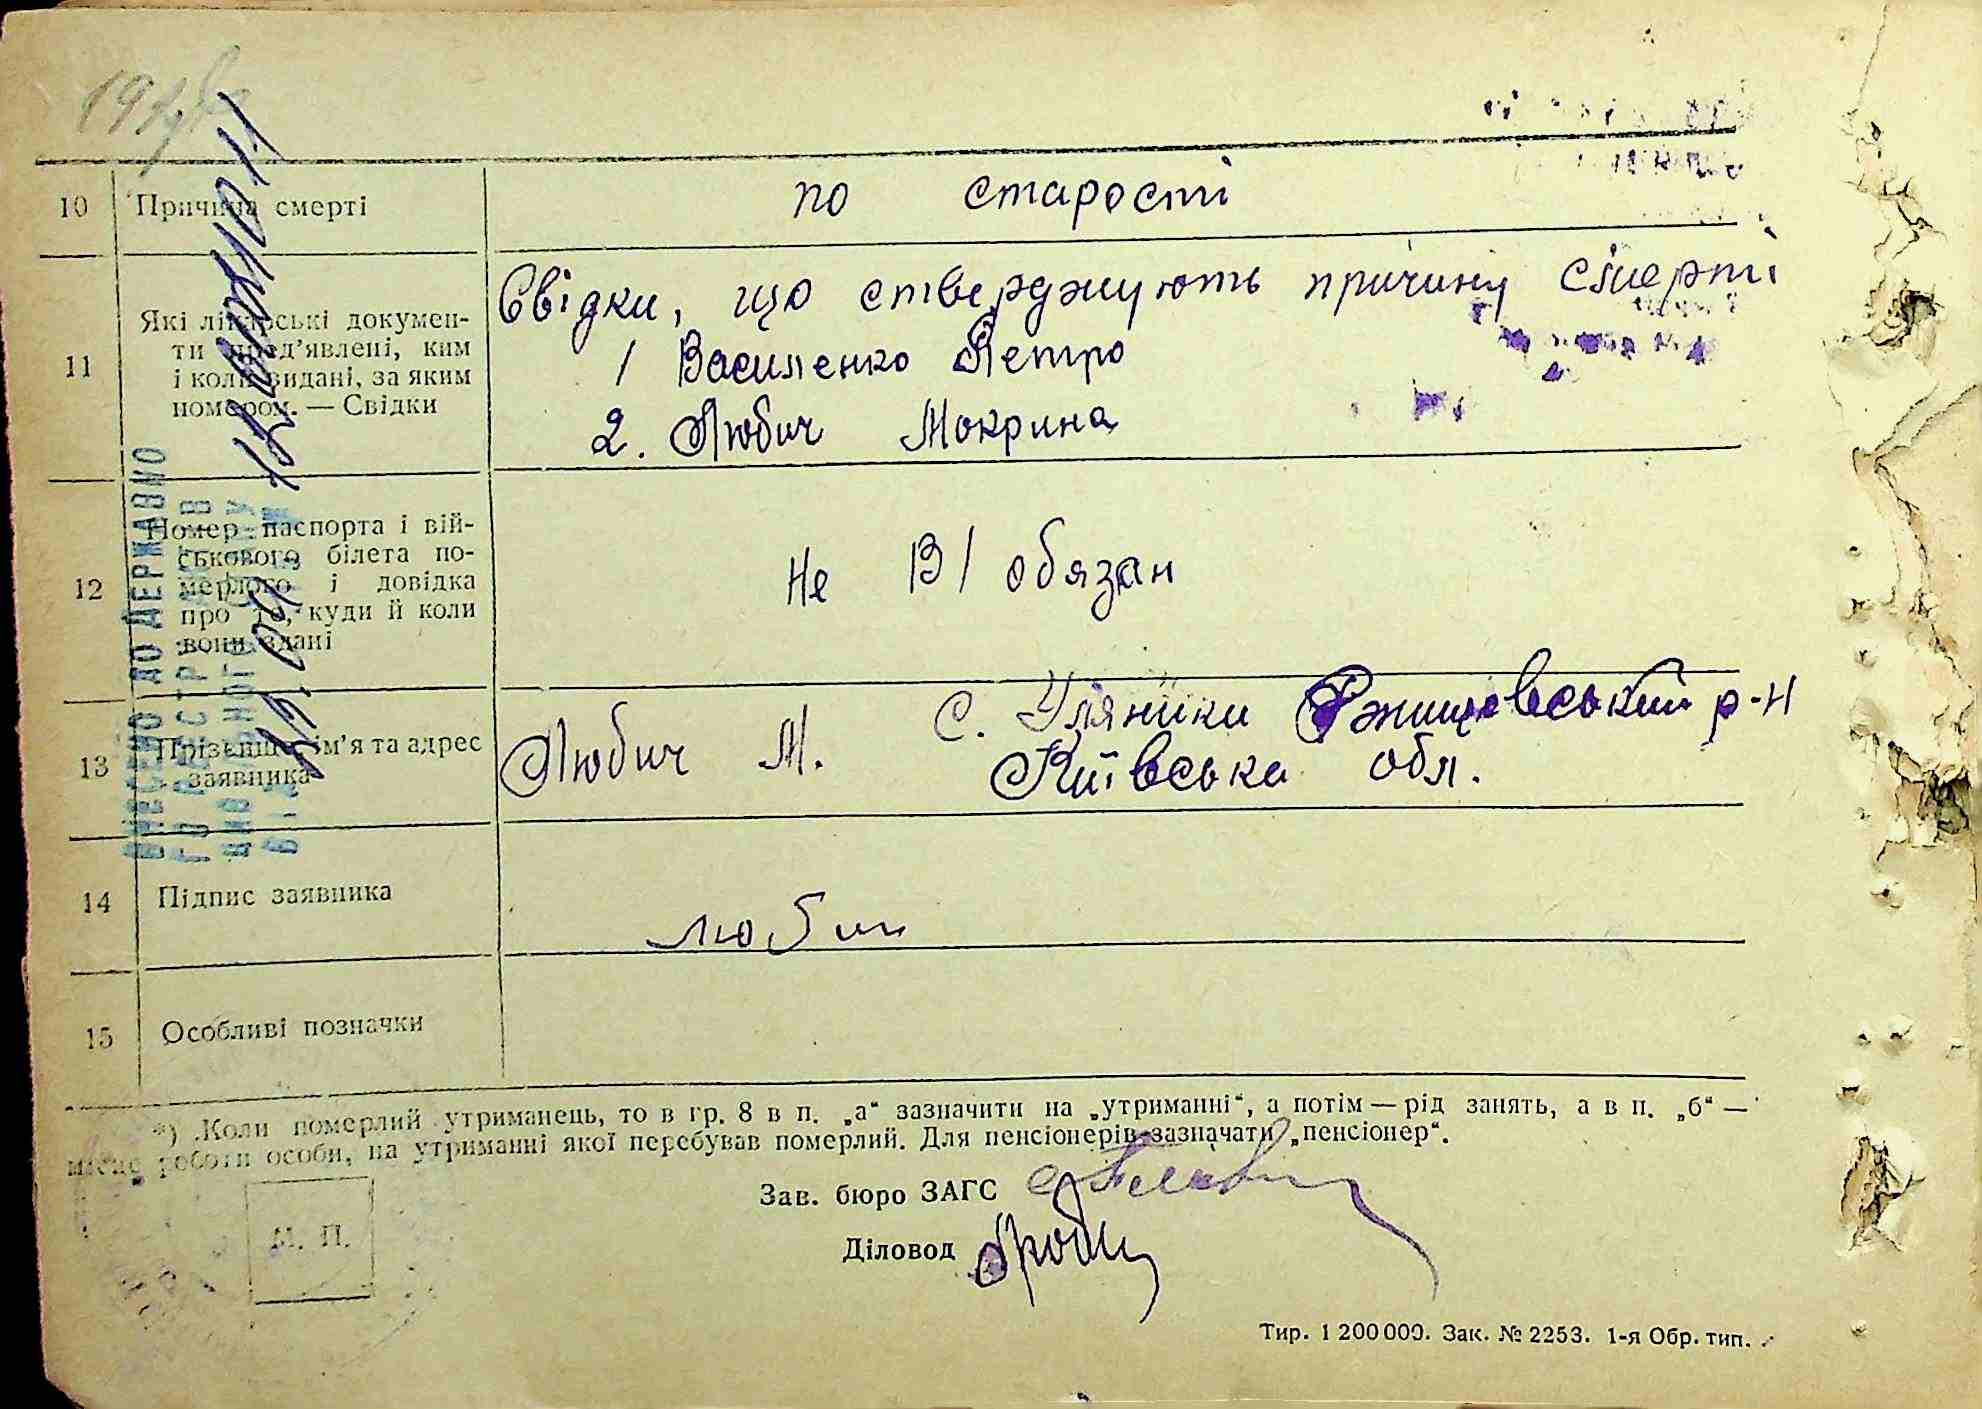 10 Причина смерті
по старості
11 Які лікарські докумен-
ти пред'явлені, ким
і коли видані, за яким
номером. — Свідки
Свідки, що стверджують причину смерті
1 Василенко Петро
2. Любич Мокрина
12 Номер паспорта і вій-
ськового білета по-
мерлого і довідка
про те, куди й коли
вони здані
Не В/обязан
13 Прізвище, ім'я та адрес
заявника
Любич М. с. Уляники Ржищевський р-н
Київська обл.
14 Підпис заявника
Любич
15 Особливі позначки
*) Коли померлий утриманець, то в гр. 8 в п. „а“ зазначити на „утриманні“, а потім — рід занять, а в п. „б“ —
місце роботи особи, на утриманні якої перебував померлий. Для пенсіонерів зазначати „пенсіонер“.
Зав. бюро ЗАГС
Діловод
М. П.
Тир. 1 200 000. Зак. № 2253. 1-я Обр. тип.
ВНЕСЕНО ДО ДЕРЖАВНО
ГО РЕЄСТРУ АКТІВ